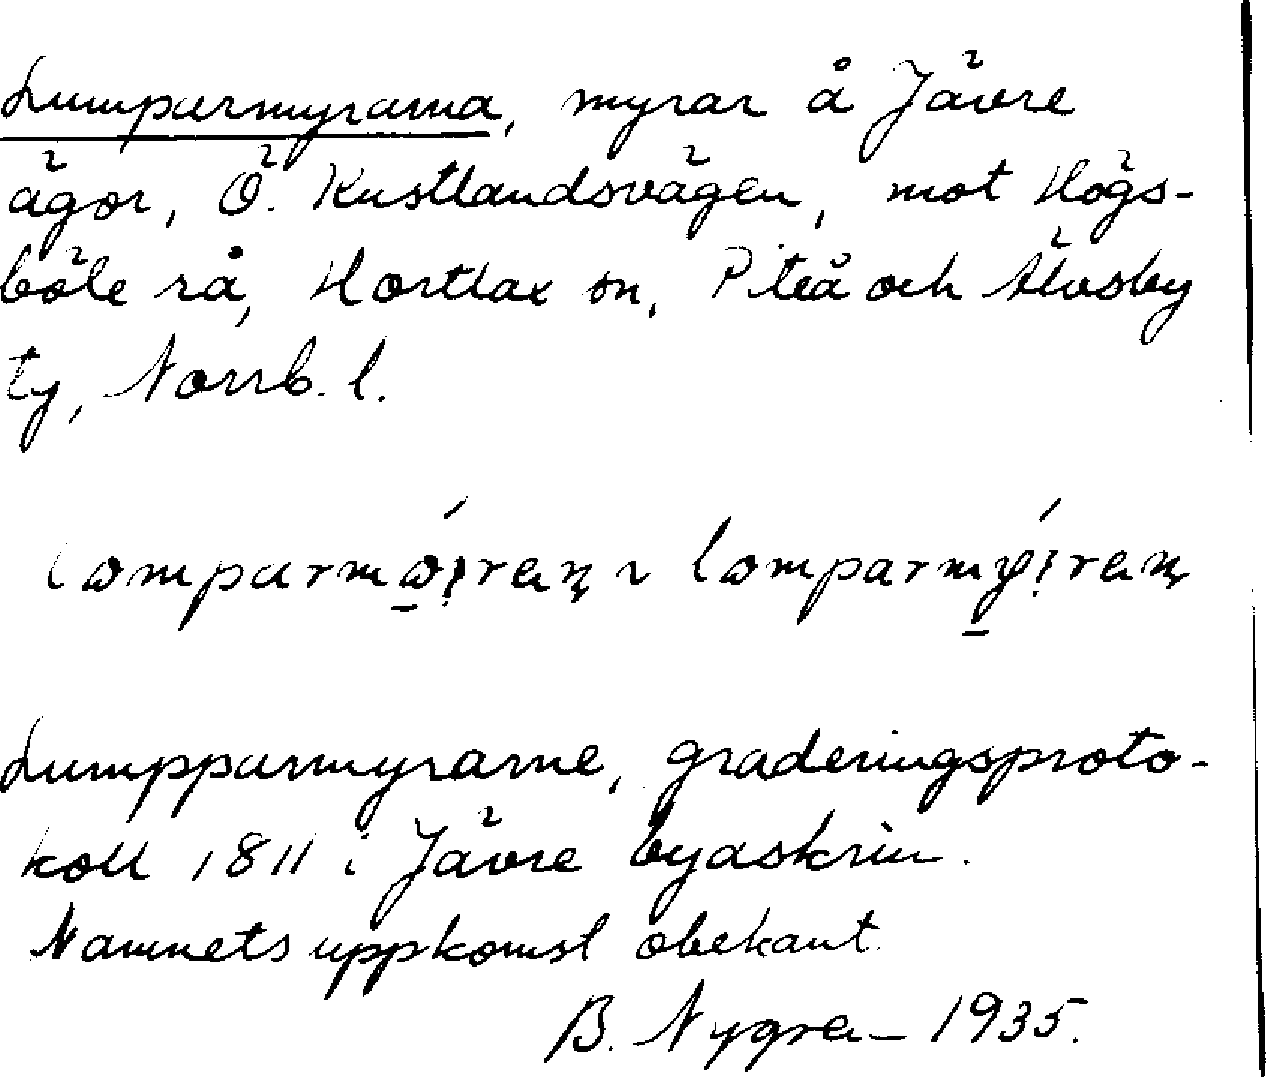 Lumparmyrarna, myrar å Jävre
ägor, Ö. Kustlandsvägen, mot Högs-
böle rå, Hortlax sn, Piteå och Älvsby
tg, Norrb. l.
Lumpparmyrarne, graderingsproto-
koll 1811 i Jävre byaskrin.
Namnets uppkomst obekant.
B. Nygren 1935.